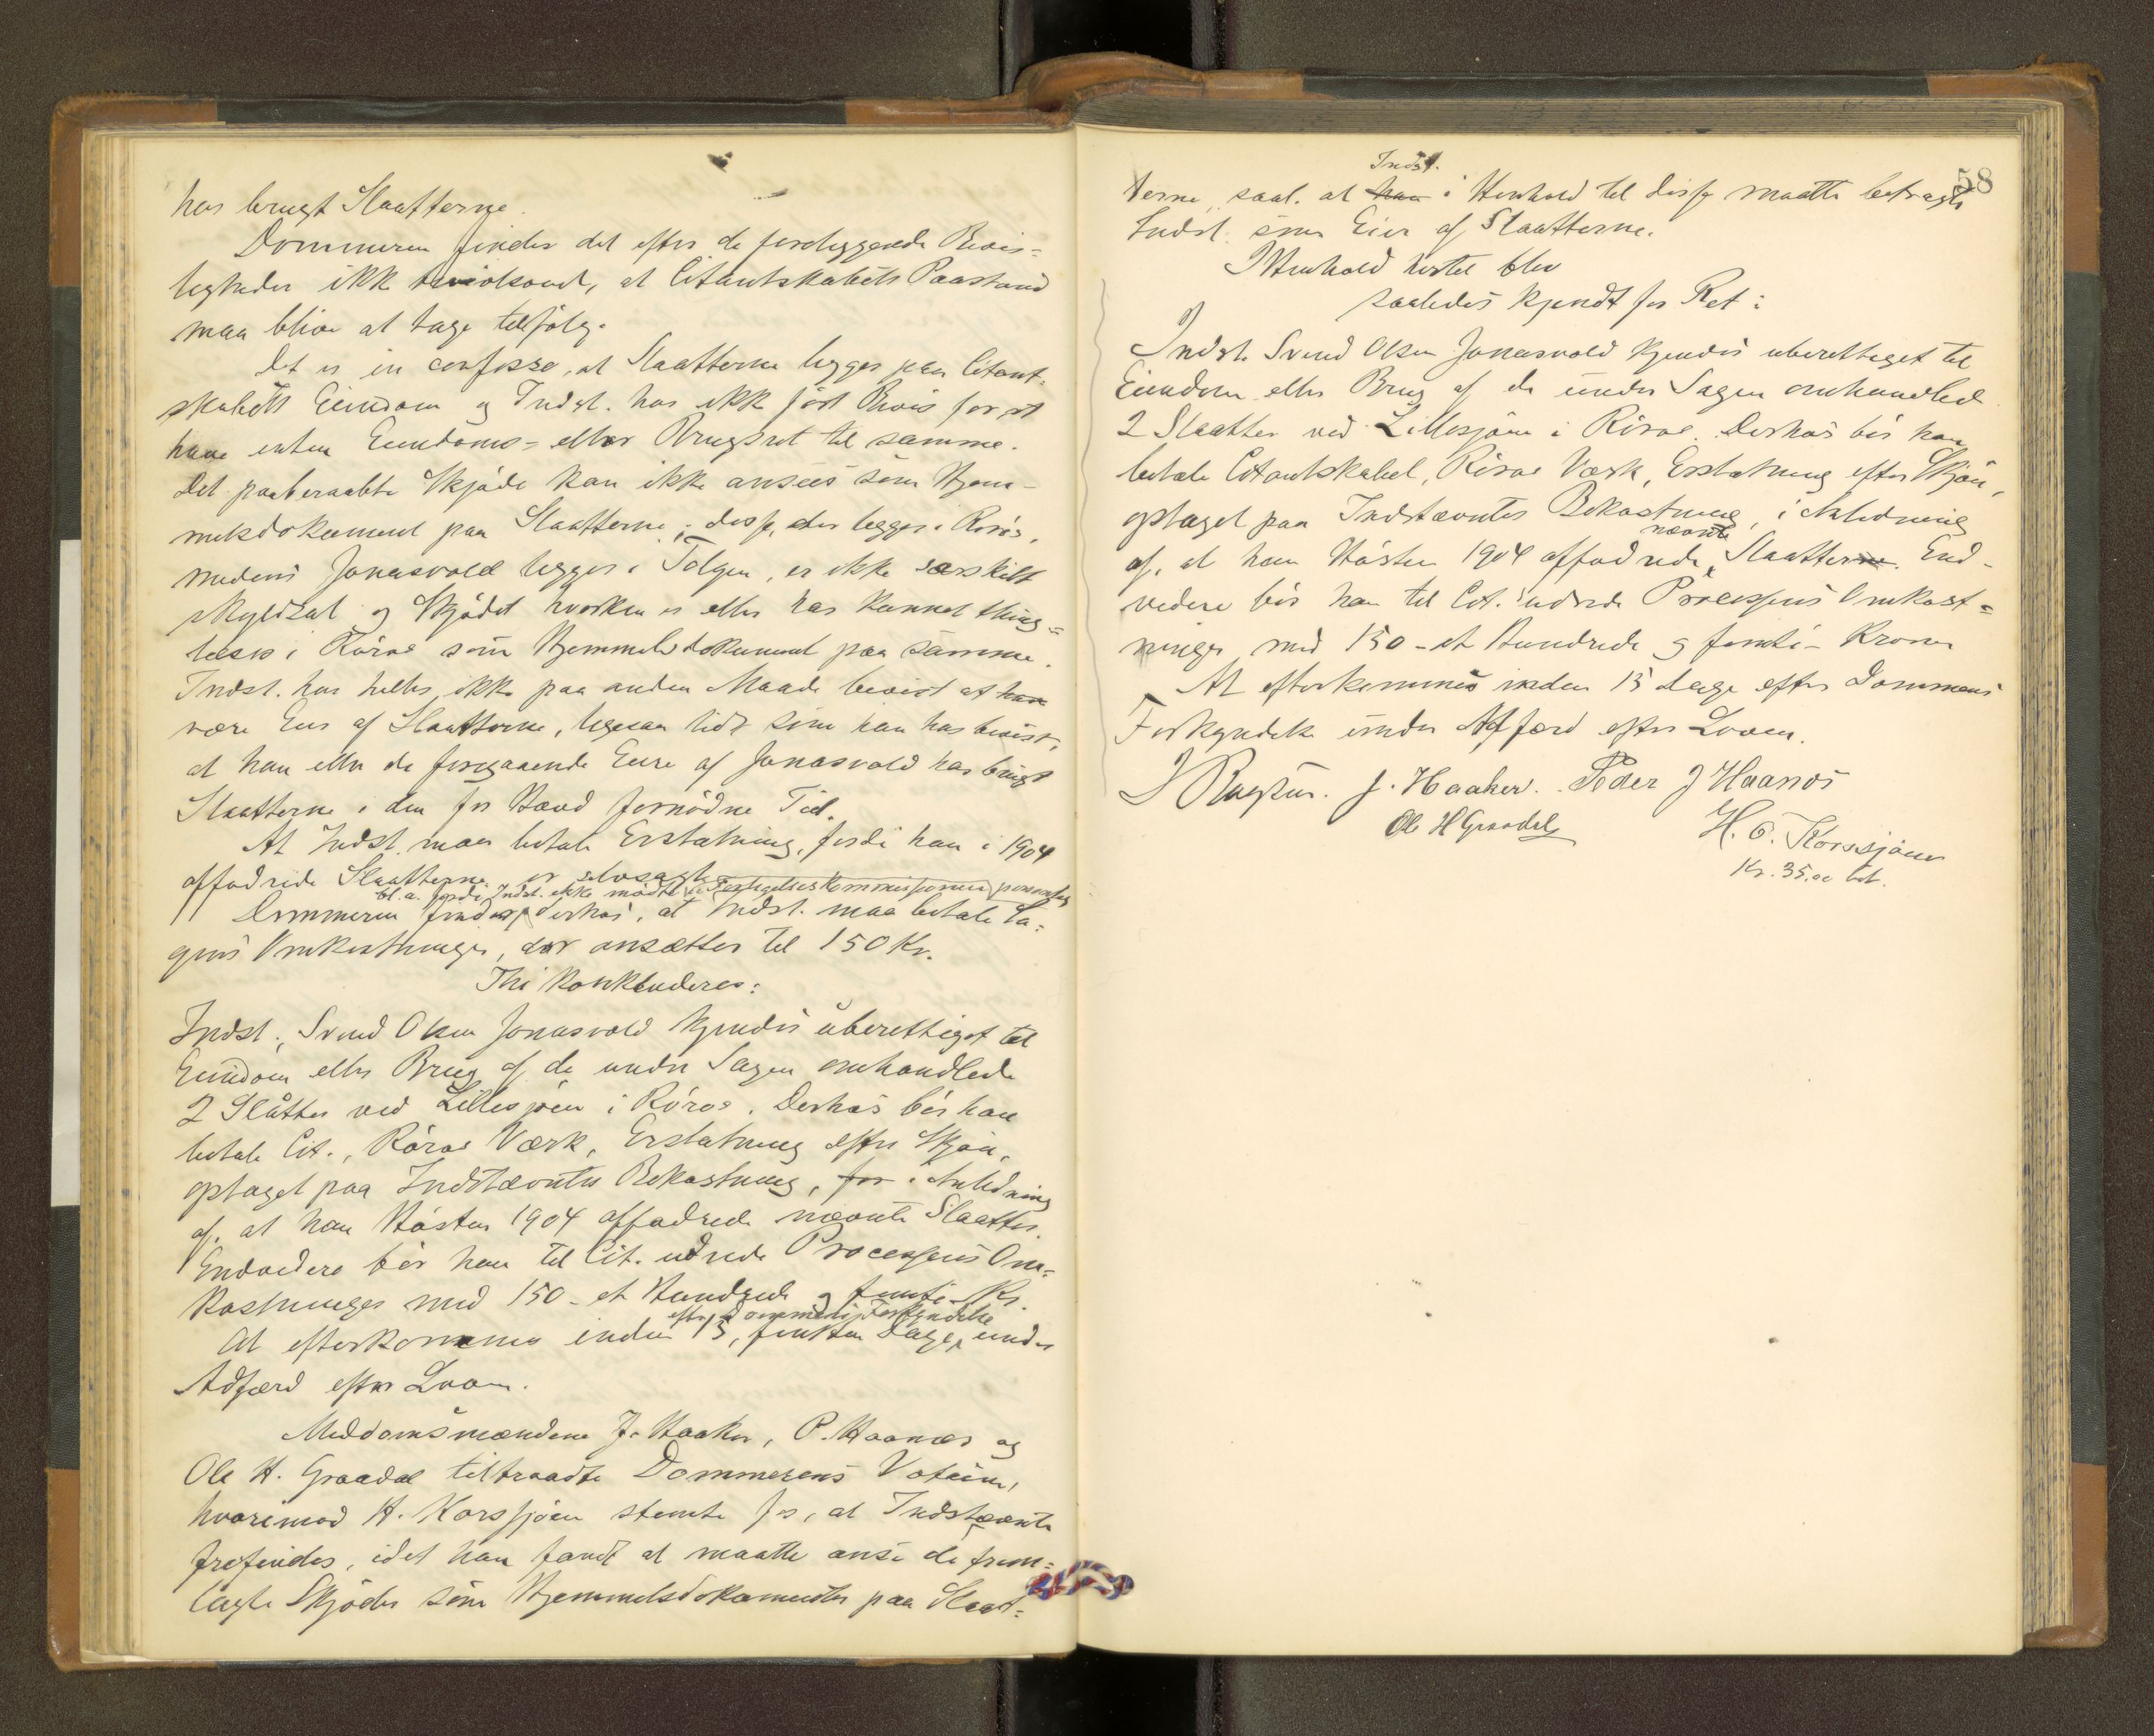 har brugt Slaatterne.
Dommeren finder det efter de foreliggende Bevis-
ligheder ikke tvivlsomt, at Citantskabets Paastand
maa blive at tage tilfølge.
Det er in confesso, at Slaatterne ligger paa Citant-
skabets Eiendom og Indst. har ikke ført Bevis for at
have enten Eiendoms- eller Brugsret til samme.
Det paaberaabte Skjøde kan ikke ansees som Hjem-
melsdokument paa Slaatterne; disse, der ligger i Røros,
medens Jonasvold ligger i Tolgen, er ikke særskilt
skyldsat og Skjødet hverken er eller har kunnet thing-
læses i Røros som Hjemmelsdokument paa samme.
Indst. har heller ikke paa anden Maade bevist at han
være Eier af Slaatterne, ligesaa lidt som han har bevist,
at han eller de foregaaende Eiere af Jonasvold har brugt
Slaatterne i den for Hævd fornødne Tid.
At Indst. maa betale Erstatning, fordi han i 1904
affodrede Slaatterne er selvsagt.
bl. a. fordi Indst. ikke mødte ved Forligelseskommissionen personlig
Dommeren finder derhos, at Indst. maa betale Sa-
gens Omkostninger, der ansættes til 150 Kr.
Thi konkluderes:
Indst., Svend Olsen Jonasvold kjendes uberettiget til
Eiendom eller Brug af de under Sagen omhandlede
2 Slåtter ved Lillesjøen i Røros. Derhos bør han
betale Cit., Røros Værk, Erstatning efter Skjøn,
optaget paa Indstævntes Bekostning, for i Anledning
af, at han Høsten 1904 affodrede nævnte Slaatter.
Endvidere bør han til Cit. udrede Processens Om-
kostninger med 150 - et Hundrede og femti - Kr.
efter Dommens Forkyndelse
At efterkommes inden 15, femten Dage, under
Adfærd efter Loven.
Meddomsmændene J. Haaker, P. Haanæs og
Ole H. Graadal tiltraadte Dommerens Votum,
hvorimod H. Korssjøen stemte for, at Indstævnte
frifindes, idet han fandt at maatte anse de frem-
lagte Skjøder som Hjemmelsdokumenter paa Slaat-
58
Indst.
terne, saal. at han i Henhold til disse maatte betragte
Indst. som Eier af Slaatterne.
I Henhold hertil blev
saaledes kjendt for Ret:
Indst. Svend Olsen Jonasvold kjendes uberettiget til
Eiendom eller Brug af de under Sagen omhandlede
2 Slaatter ved Lillesjøen i Røros. Derhos bør han
betale Citantskabet, Røros Værk, Erstatning efter Skjøn,
optaget paa Indstævntes Bekostning, i Anledning
nævnte
af, at han Høsten 1904 affodrede Slaatterne. End-
videre bør han til Cit. udrede Processens Omkost-
ninger med 150 - et Hundrede og femti - Kroner
At efterkommes inden 15 Dage efter Dommens
Forkyndelse under Adfærd efter Loven.
J. Haaker. Peder J Haanæs
Ole H Graadal
H. O. Korssjøen
Kr. 35,00 bet.